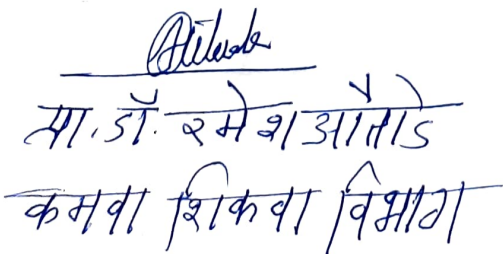 प्रा. डॉ. रमेश औताडे
कमवा शिकवा विभाग